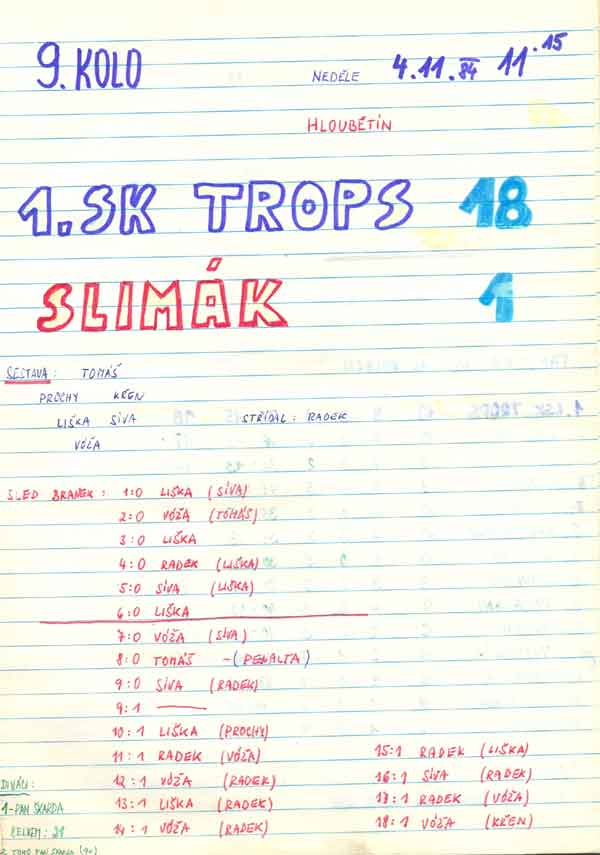 9. KOLO NEDĚLE 4.11.84 11.15
HLOUBĚTÍN
1.SK TROPS 18
SLIMÁK 1
SESTAVA: TOMÁŠ
PROCHY KŘEN
LIŠKA SÍVA STŘÍDAL: RADEK
VÓŽA
SLED BRANEK: 1:0 LIŠKA (SÍVA)
2:0 VÓŽA (TOMÁŠ)
3:0 LIŠKA
4:0 RADEK (LIŠKA)
5:0 SÍVA (LIŠKA)
6:0 LIŠKA
7:0 VÓŽA (SÍVA)
8:0 TOMÁŠ -(PENALTA)
9:0 SÍVA (RADEK)
9:1 —
10:1 LIŠKA (PROCHY)
11:1 RADEK (VÓŽA)
12:1 VÓŽA (RADEK)
13:1 LIŠKA (RADEK)
14:1 VÓŽA (RADEK)
15:1 RADEK (LIŠKA)
16:1 SÍVA (RADEK)
17:1 RADEK (VÓŽA)
18:1 VÓŽA (KŘEN)
DIVÁCI:
1-PAN SKARDA
CELKEM: 21
Z TOHO PAN SKARDA (9x)